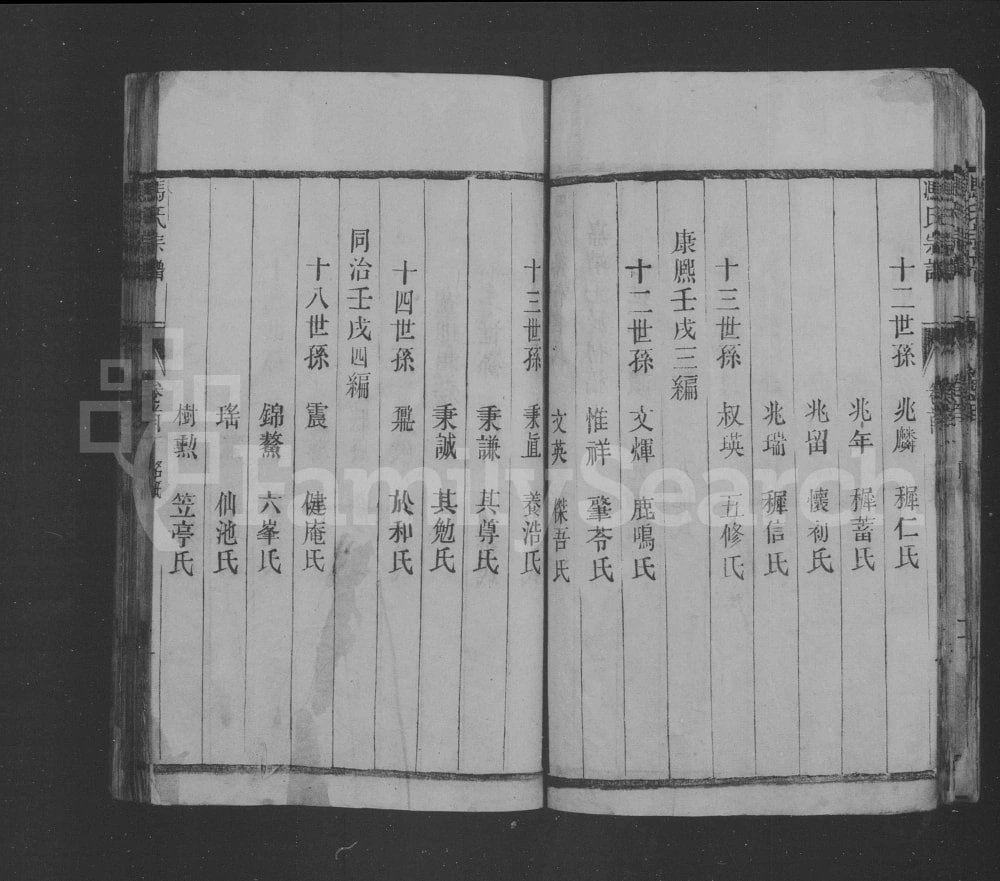 馮氏宗譜
十二世孫 兆麟 穉仁氏
兆年 穉蓄氏
兆留 懷初氏
兆瑞 穉信氏
十三世孫 叔瑛 五修氏
康熈壬戌三編
十二世孫 文煇 鹿鳴氏
惟祥 肇苓氏
文英 傑吾氏
十三世孫 秉眞 養浩氏
秉謙 其尊氏
秉誠 其勉氏
十四世孫 於和氏
同治壬戌四編
十八世孫 震 健庵氏
錦鰲 六峯氏
瑤 仙池氏
樹勲 笠亭氏
馮氏宗譜
FamilySearch